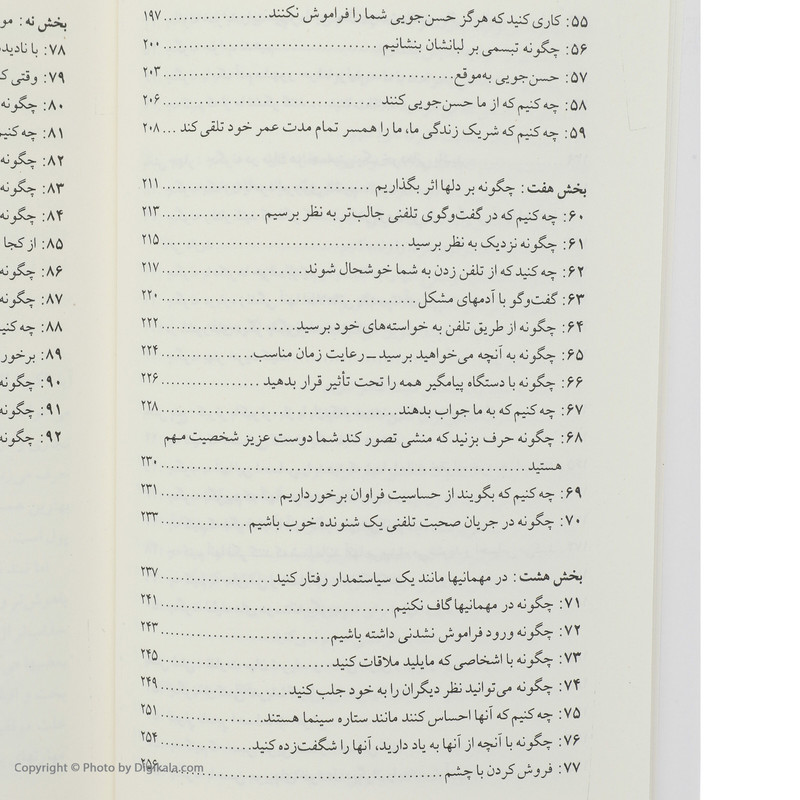 ۵۵: کاری کنید که هرگز حسن‌جویی شما را فراموش نکنند....................۱۹۷
۵۶: چگونه تبسمی بر لبانشان بنشانیم ....................۲۰۰
۵۷: حسن‌جویی به‌موقع....................۲۰۳
۵۸: چه کنیم که از ما حسن‌جویی کنند ....................۲۰۶
۵۹: چه کنیم که شریک زندگی ما، ما را همسر تمام مدت عمر خود تلقی کند ...۲۰۸
بخش هفت: چگونه بر دلها اثر بگذاریم ....................۲۱۱
۶۰: چه کنیم که در گفت‌وگوی تلفنی جالب‌تر به نظر برسیم ....................۲۱۳
۶۱: چگونه نزدیک به نظر برسید....................۲۱۵
۶۲: چه کنید که از تلفن زدن به شما خوشحال شوند ....................۲۱۷
۶۳: گفت‌وگو با آدمهای مشکل....................۲۲۰
۶۴: چگونه از طریق تلفن به خواسته‌های خود برسید....................۲۲۲
۶۵: چگونه به آنچه می‌خواهید برسید ــ رعایت زمان مناسب....................۲۲۴
۶۶: چگونه با دستگاه پیامگیر همه را تحت تأثیر قرار بدهید ....................۲۲۶
۶۷: چه کنیم که به ما جواب بدهند....................۲۲۸
۶۸: چگونه حرف بزنید که منشی تصور کند شما دوست عزیز شخصیت مهم
هستید....................۲۳۰
۶۹: چه کنیم که بگویند از حساسیت فراوان برخورداریم ....................۲۳۱
۷۰: چگونه در جریان صحبت تلفنی یک شنونده خوب باشیم....................۲۳۳
بخش هشت: در مهمانیها مانند یک سیاستمدار رفتار کنید....................۲۳۷
۷۱: چگونه در مهمانیها گاف نکنیم ....................۲۴۱
۷۲: چگونه ورود فراموش نشدنی داشته باشیم....................۲۴۳
۷۳: چگونه با اشخاصی که مایلید ملاقات کنید....................۲۴۵
۷۴: چگونه می‌توانید نظر دیگران را به خود جلب کنید....................۲۴۹
۷۵: چه کنیم که آنها احساس کنند مانند ستاره سینما هستند....................۲۵۱
۷۶: چگونه با آنچه از آنها به یاد دارید، آنها را شگفت‌زده کنید....................۲۵۴
۷۷: فروش کردن با چشم....................۲۵۶
بخش نه:
۷۸: با
۷۹: وقتی
۸۰: چگونه
۸۱: چه کنیم
۸۲: چگونه
۸۳: چگونه
۸۴: چگونه
۸۵: از کجا
۸۶: چگونه
۸۷: چگونه
۸۸: چه
۸۹:
۹۰: چگونه
۹۱: چگونه
۹۲: چگونه
Copyright © Photo by Digikala.com